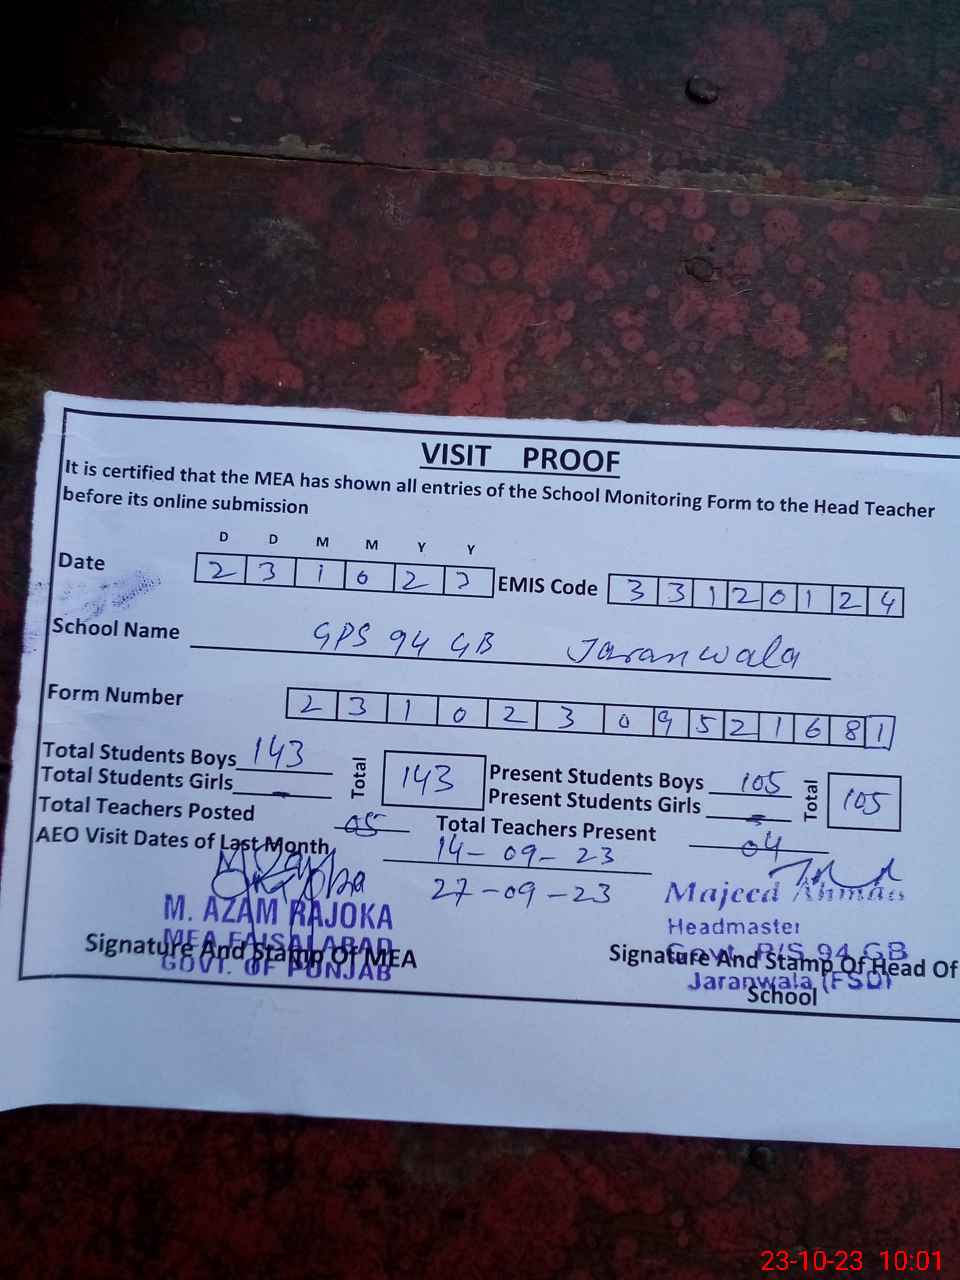 VISIT PROOF
It is certified that the MEA has shown all entries of the School Monitoring Form to the Head Teacher
before its online submission
D D M M Y Y
Date 2 3 1 0 2 3 EMIS Code 3 3 1 2 0 1 2 4
School Name GPS 94 GB Jaranwala
Form Number 2 3 1 0 2 3 0 9 5 2 1 6 8 1
Total Students Boys 143 Total 143 Present Students Boys 105 Total 105
Total Students Girls - Present Students Girls -
Total Teachers Posted 05 Total Teachers Present 04
AEO Visit Dates of Last Month 14-09-23
27-09-23
M. AZAM RAJOKA
MEA FAISALABAD
GOVT. OF PUNJAB
Signature And Stamp Of MEA
Majeed Ahmad
Headmaster
Govt. P/S 94 GB
Jaranwala (FSD)
Signature And Stamp Of Head Of
School
23-10-23 10:01